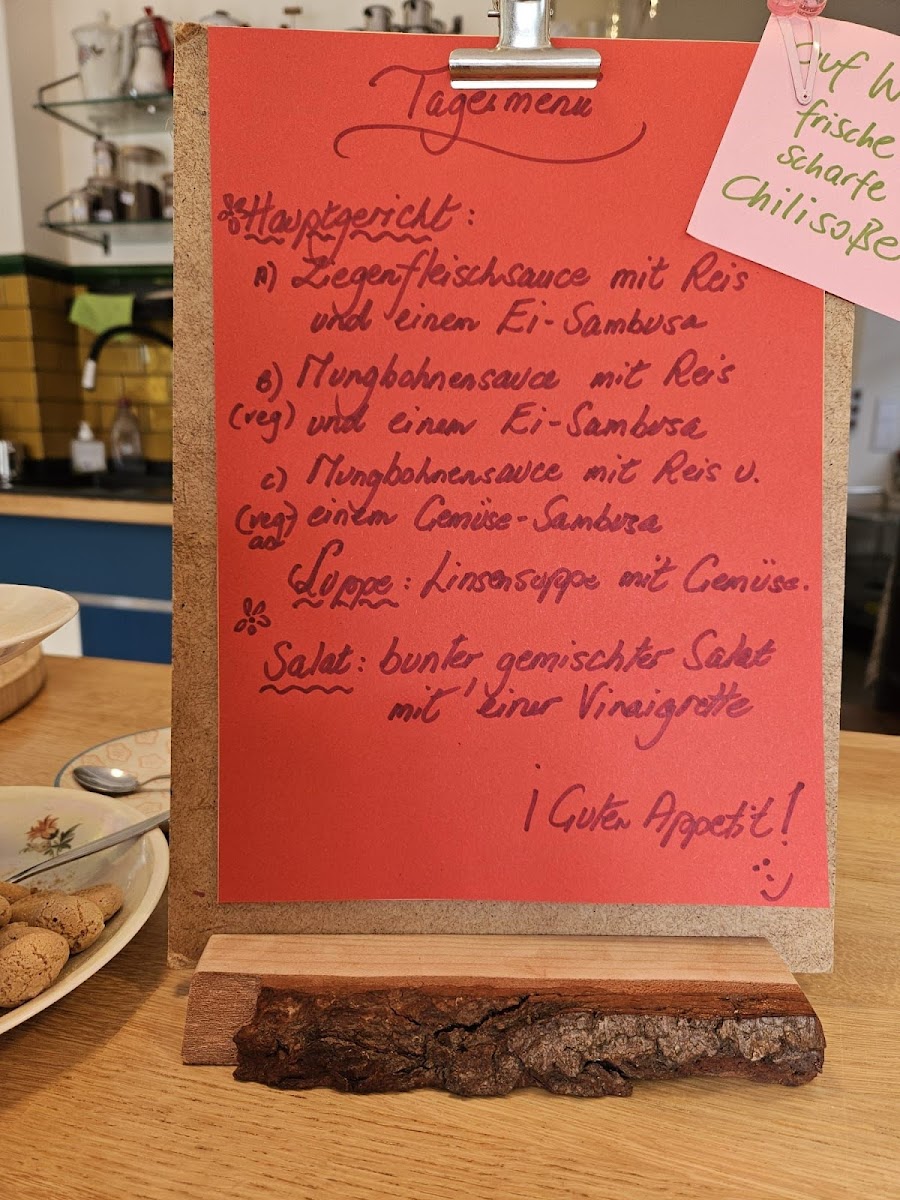 Tagesmenu
Hauptgericht:
A) Ziegenfleischsauce mit Reis
und einem Ei-Sambusa
B) Mungbohnensauce mit Reis
(veg) und einem Ei-Sambusa
C) Mungbohnensauce mit Reis u.
(veg) einem Gemüse-Sambusa
Suppe: Linsensuppe mit Gemüse.
Salat: bunter gemischter Salat
mit einer Vinaigrette
¡Guten Appetit!
auf W
frische
scharfe
Chilisoße